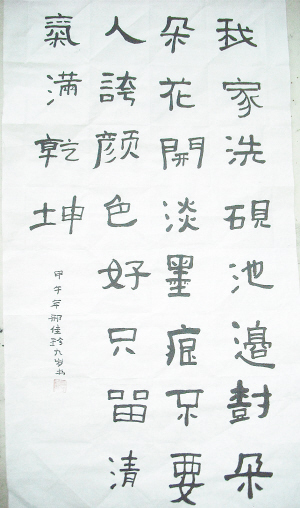 我家洗硯池邊尌朵
朵花開淡墨痕不要
人誇顏色好只留清
氣滿乾坤
甲午年佳九岁书